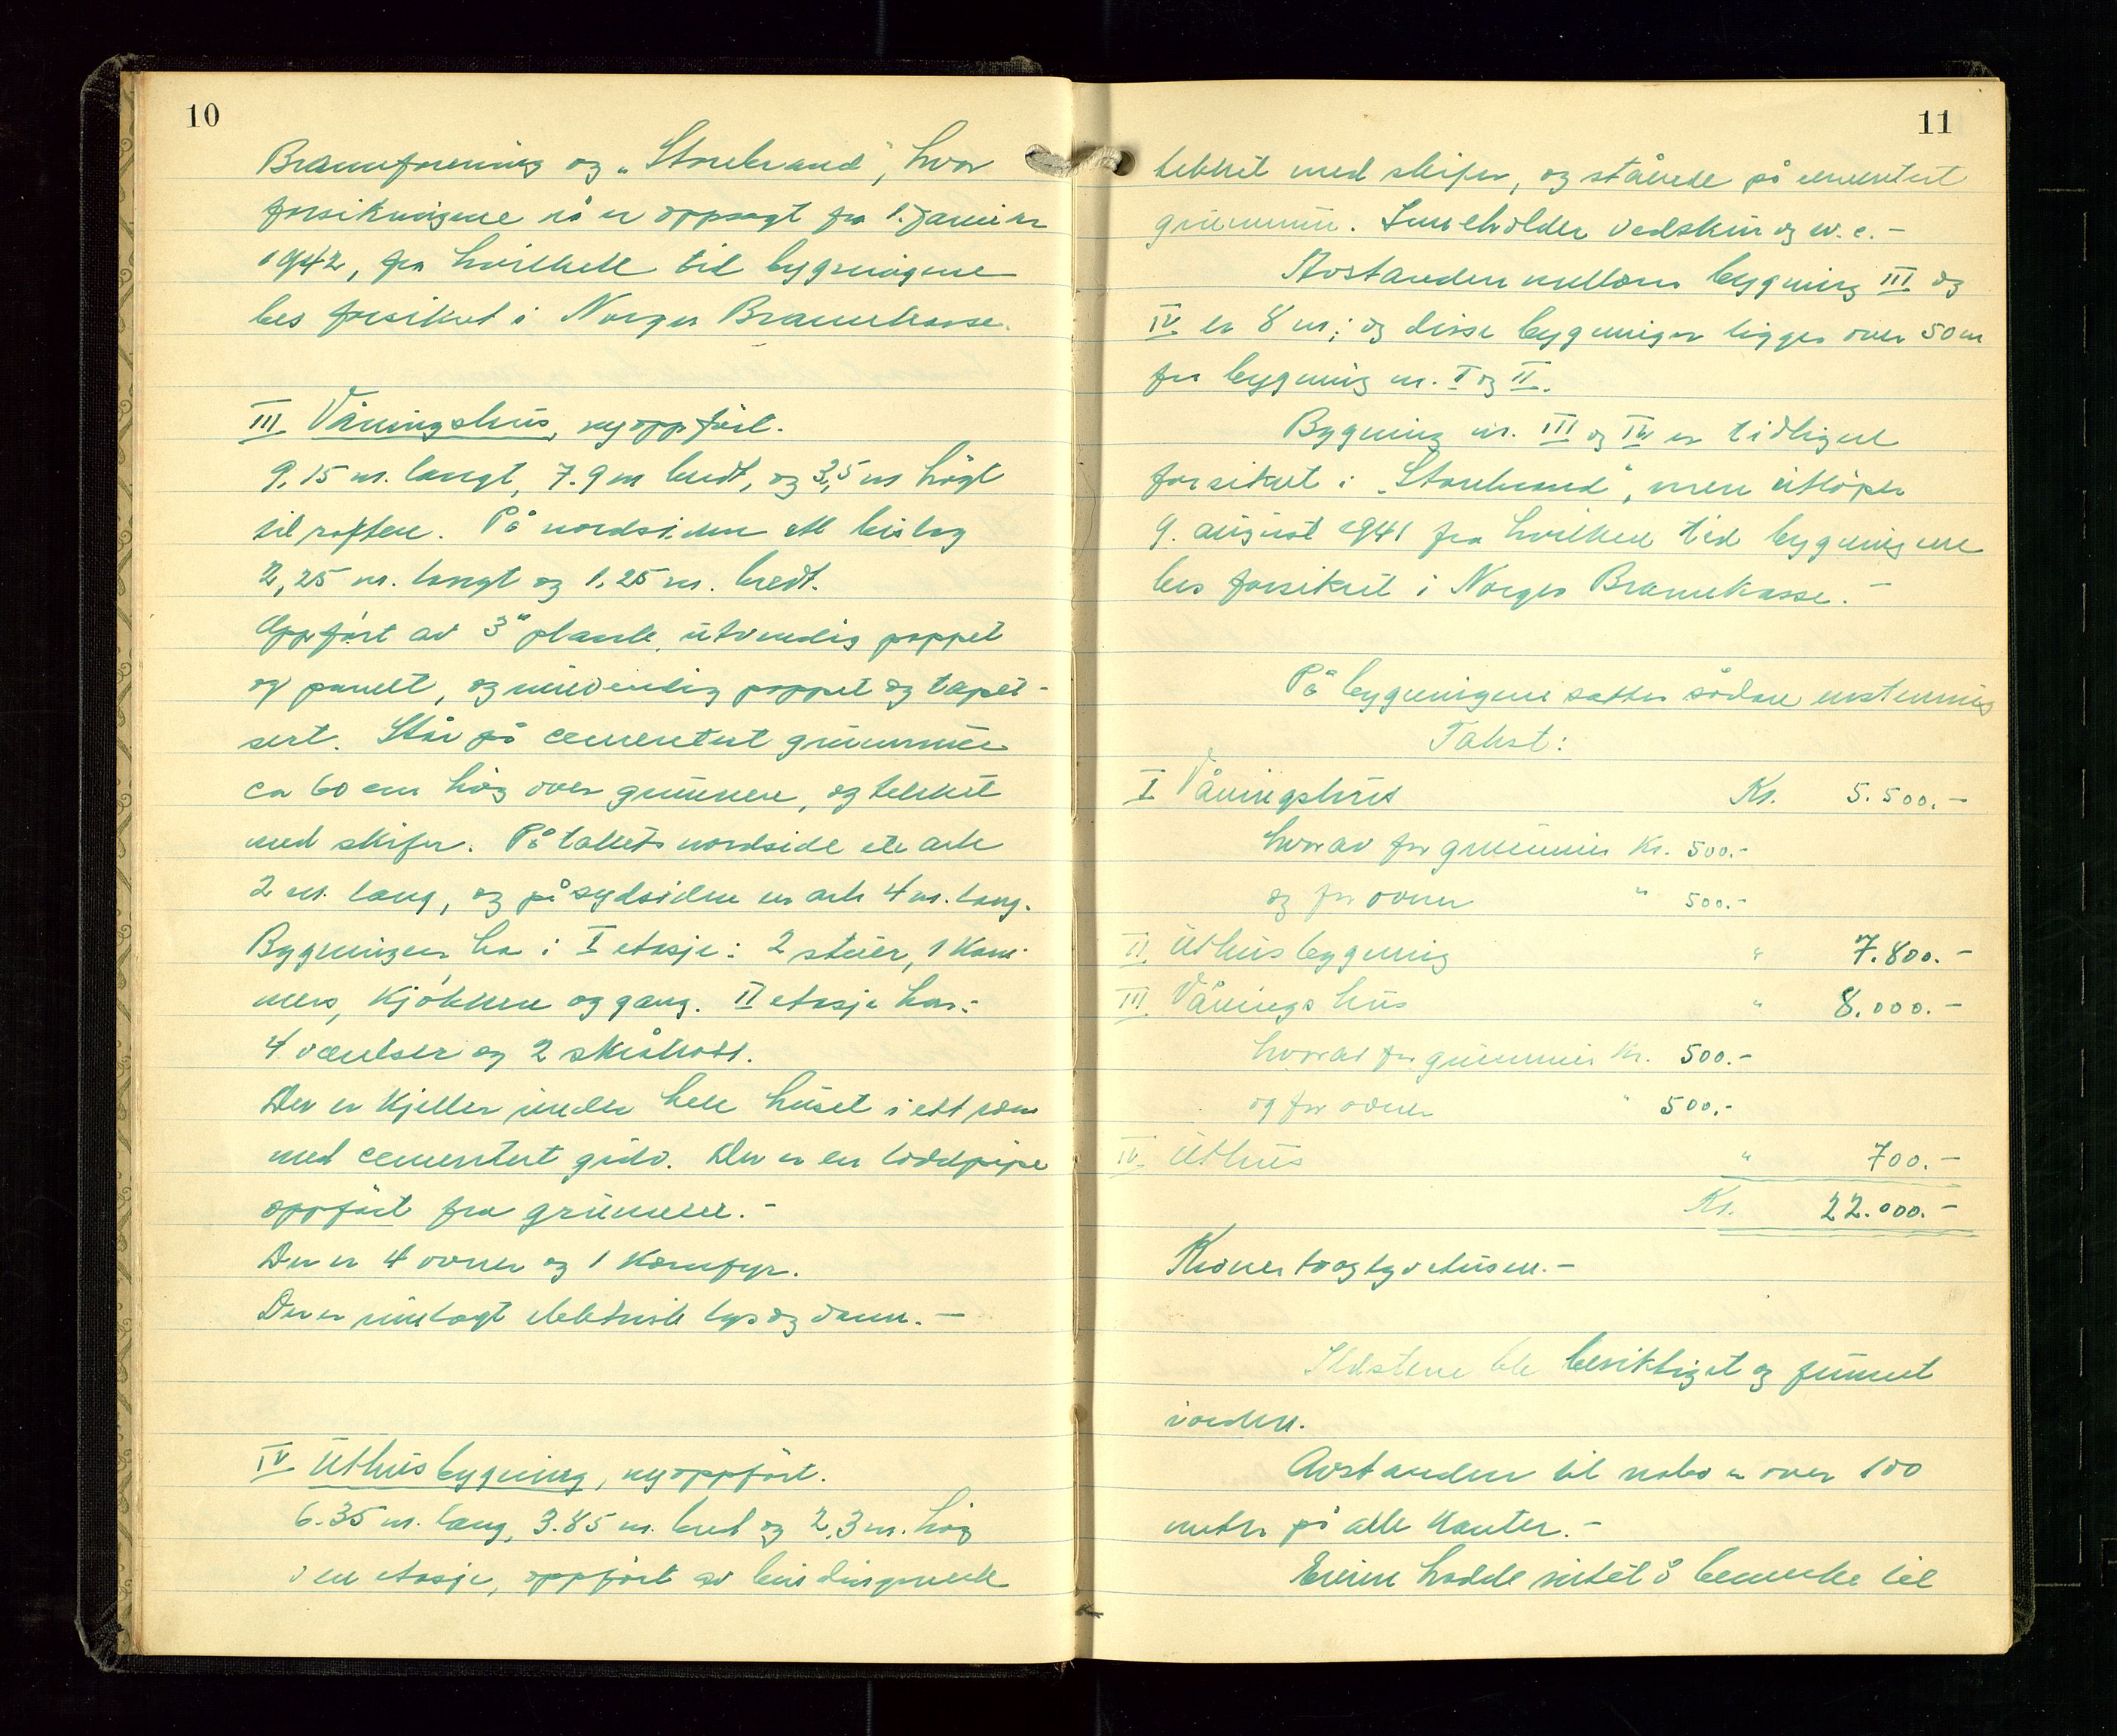 10
Brannforening og „Storebrand”, hvor
forsikringene nå er oppsagt fra 1. januar
1942, fra hvilken tid bygningene
bes forsikret i Norges Brannkasse.
III Våningshus, nyoppført.
9,15 m. langt, 7.9 m bredt, og 3,5 m høgt
til raften. På nordsiden ett bislag
2,25 m. langt og 1,25 m. bredt.
Oppført av 3" planke, utvendig pappet
og panelt, og innvendig pappet og tapet-
sert. Står på cementert grunnmur
ca 60 cm høg over grunnen, og tekket
med skifer. På takets nordside ett ark
2 m. lang, og på sydsiden en ark 4 m. lang.
Bygningen har i I etasje: 2 stuer, 1 kam-
mers, kjøkken og gang. II etasje har:
4 værelser og 2 skråkott.
Der er kjeller under hele huset i ett rom
med cementert gulv. Der er en loddpipe
oppført fra grunnen.-
Der er 4 ovner og 1 komfyr.
Der er innlagt elektrisk lys og vann.-
IV Uthusbygning, nyoppført.
6.35 m. lang, 3.85 m. bred og 2,3 m. høg
i en etasje, oppført av bindingsverk
11
tekket med skifer, og stående på cementert
grunnmur. Inneholder vedskur og w.c.-
Avstanden mellom bygning III og
IV er 8 m; og disse bygninger ligger over 50 m
fra bygning nr. I og II.
Bygning nr. III og IV er tidligere
forsikret i „Storebrand”, men utløper
9. august 1941 fra hvilken tid bygningene
bes forsikret i Norges Brannkasse.-
På bygningene sattes sådan enstemmig
Takst:
I Våningshus Kr. 5.500.-
hvorav for grunnmur Kr. 500.-
og for ovner " 500.-
II. Uthusbygning " 7.800.-
III. Våningshus " 8.000.-
hvorav for grunnmur Kr. 500.-
og for ovner " 500.-
IV. Uthus " 700.-
Kr. 22.000.-
Kroner toogtyvetusen.-
Ildstene ble besiktiget og funnet
i orden.
Avstanden til nabo er over 100
meter på alle kanter.-
Eieren hadde intet å bemerke til